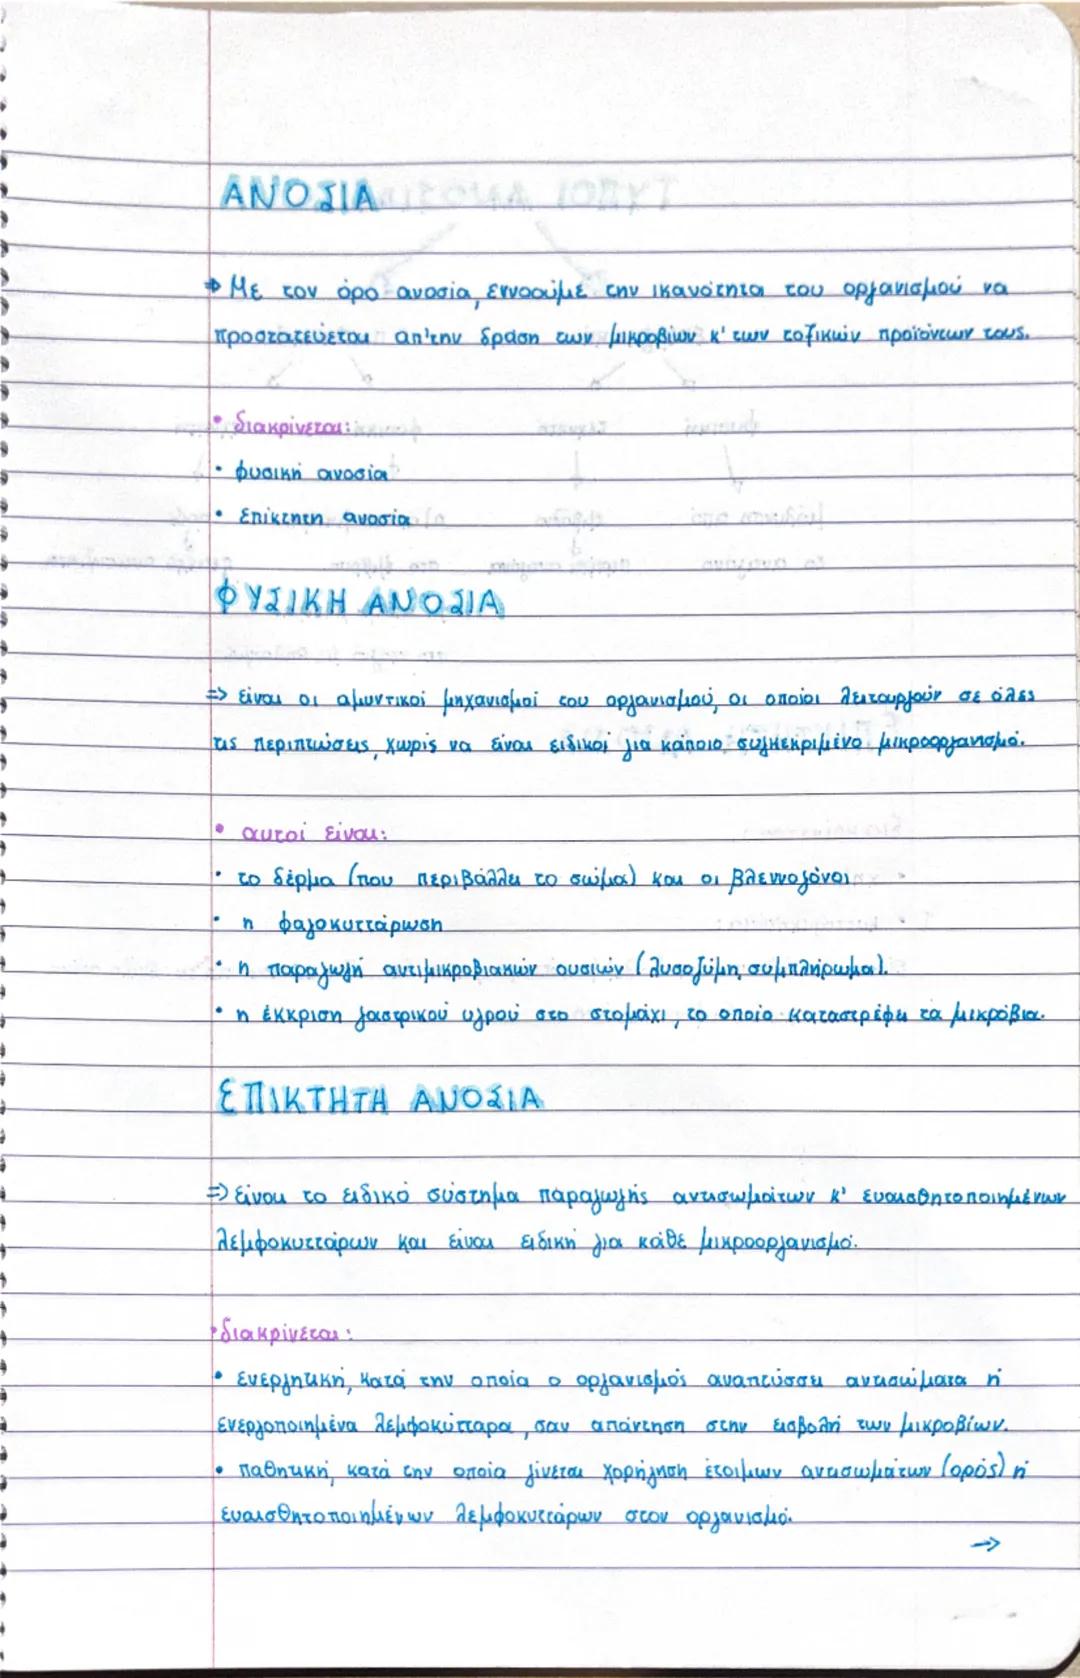 ΑΝΟΣΙΑ
⇒ Με τον όρο ανοσία, εννοούμε την ικανότητα του οργανισμού να
προστατεύεται απ'την δράση των μικροβίων κ' των τοξικών προϊόντων τους.
• διακρίνεται:
• φυσική ανοσία
• επίκτητη ανοσία
ΦΥΣΙΚΗ ΑΝΟΣΙΑ
=> είναι οι αμυντικοί μηχανισμοί του οργανισμού, οι οποίοι λειτουργούν σε όλες
τις περιπτώσεις, χωρίς να είναι ειδικοί για κάποιο συγκεκριμένο μικροοργανισμό.
• αυτοί είναι:
• το δέρμα (που περιβάλλει το σώμα) και οι βλεννογόνοι
• η φαγοκυττάρωση
• η παραγωγή αντιμικροβιακών ουσιών (λυσοζύμη, συμπλήρωμα).
• η έκκριση γαστρικού υγρού στο στομάχι, το οποίο καταστρέφει τα μικρόβια.
ΕΠΙΚΤΗΤΗ ΑΝΟΣΙΑ
=> είναι το ειδικό σύστημα παραγωγής αντισωμάτων κ' ευαισθητοποιημένων
λεμφοκυττάρων και είναι ειδική για κάθε μικροοργανισμό.
• διακρίνεται:
• ενεργητική, κατά την οποία ο οργανισμός αναπτύσσει αντισώματα ή
ενεργοποιημένα λεμφοκύτταρα, σαν απάντηση στην εισβολή των μικροβίων.
• παθητική, κατά την οποία γίνεται χορήγηση έτοιμων αντισωμάτων (ορός) ή
ευαισθητοποιημένων λεμφοκυττάρων στον οργανισμό.
→